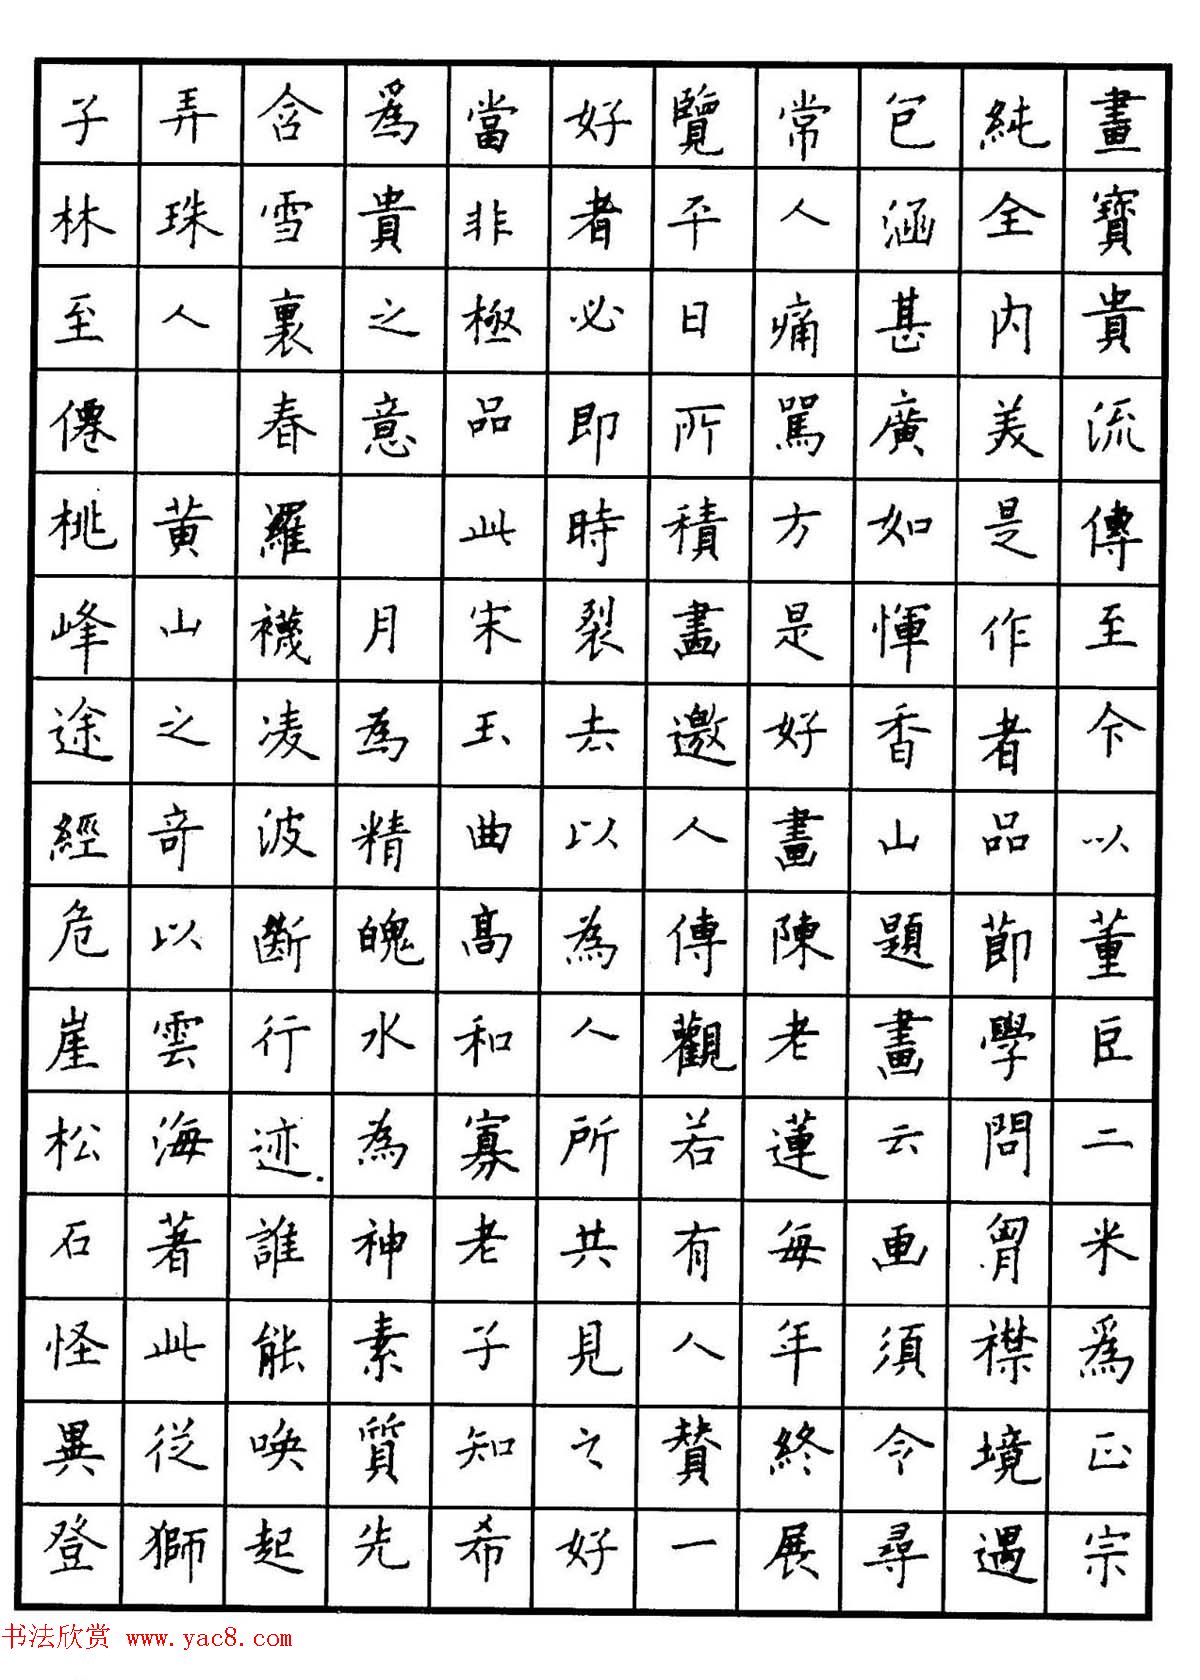 畫寶貴流傳至今以董巨二米爲正宗
純全內美是作者品節學問胷襟境遇
包涵甚廣如惲香山題畫云画須令尋
常人痛罵方是好畫陳老蓮每年終展
覽平日所積畫邀人傳觀若有人贊一
好者必即時裂去以為人所共見之好
當非極品此宋玉曲高和寡老子知希
爲貴之意 月為精魄水為神素質先
含雪裏春羅襪凌波斷行迹.誰能唤起
弄珠人 黄山之奇以雲海著此從獅
子林至僊桃峰途經危崖松石怪異登
书法欣赏 www.yac8.com